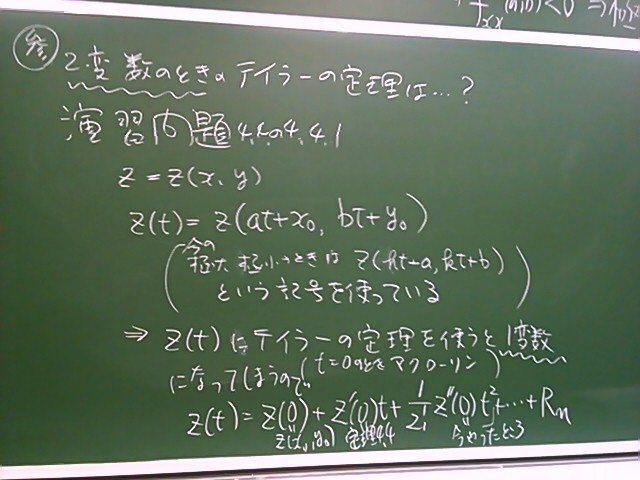 fxx(a,b)<0 ⇒ 極
参 2変数のときのテイラーの定理は…?
演習問題 4.4の4.4.1
z = z(x, y)
z(t) = z(at+x₀, bt+y₀)
今の
極大極小のときは z(ht+a, kt+b)
という記号を使っている
⇒ z(t)にテイラーの定理を使うと1変数
(t=0のときマクローリン)
になってしまうので
z(t) = z(0) + z'(0)t + 1/2! z''(0)t² + … + Rn
z(x₀, y₀) 定理4.4 今やったところ